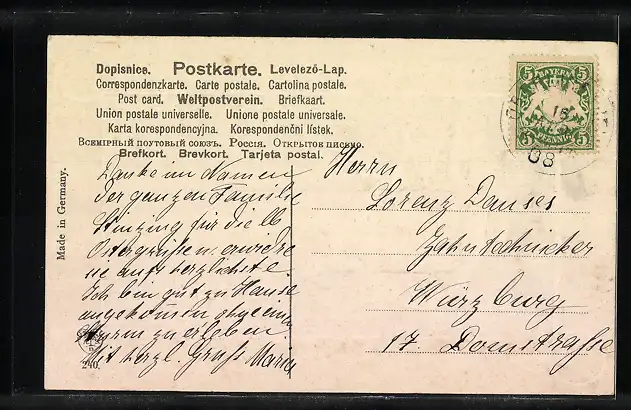 Dopisnice. Postkarte. Levelező-Lap.
Correspondenzkarte. Carte postale. Cartolina postale.
Post card. Weltpostverein. Briefkaart.
Union postale universelle. Unione postale universale.
Karta korespondencyjna. Korespondenční lístek.
Всемірный почтовый союзъ. Россія. Открытое письмо.
Brefkort. Brevkort. Tarjeta postal.
Made in Germany.
5 BAYERN 5
5 PFENNIG 5
15
08
Danke im Namen
der ganzen Familie
für die lb
Ostergrüße u. erwidre
sie aufs herzlichste.
Ich bin gut zu Hause
angekommen ohne einen
Sturm zu erleben
Mit herzl. Gruß Marie
240.
Herrn
Lorenz Danses
Zahntechniker
Würzburg
17. Domstrasse